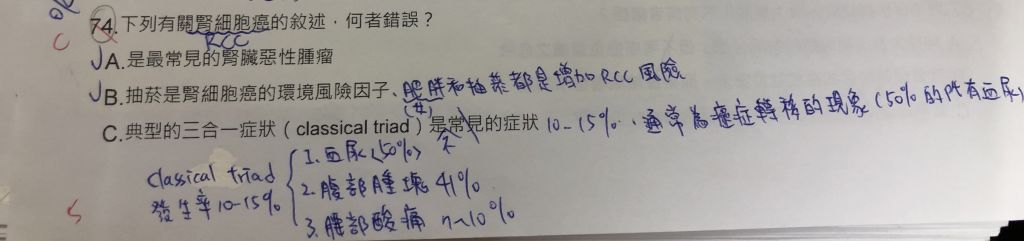 C 74.下列有關腎細胞癌的敘述，何者錯誤？
RCC
A.是最常見的腎臟惡性腫瘤
B.抽菸是腎細胞癌的環境風險因子、肥胖和抽菸都是增加RCC風險
(女)
C.典型的三合一症狀（classical triad）是常見的症狀 10-15%、通常為癌症轉移的現象（50%的Pt有血尿）
余
classical triad
發生率10-15%
1.血尿(50%)
2.腹部腫塊 41%
3.腰部酸痛 n~10%